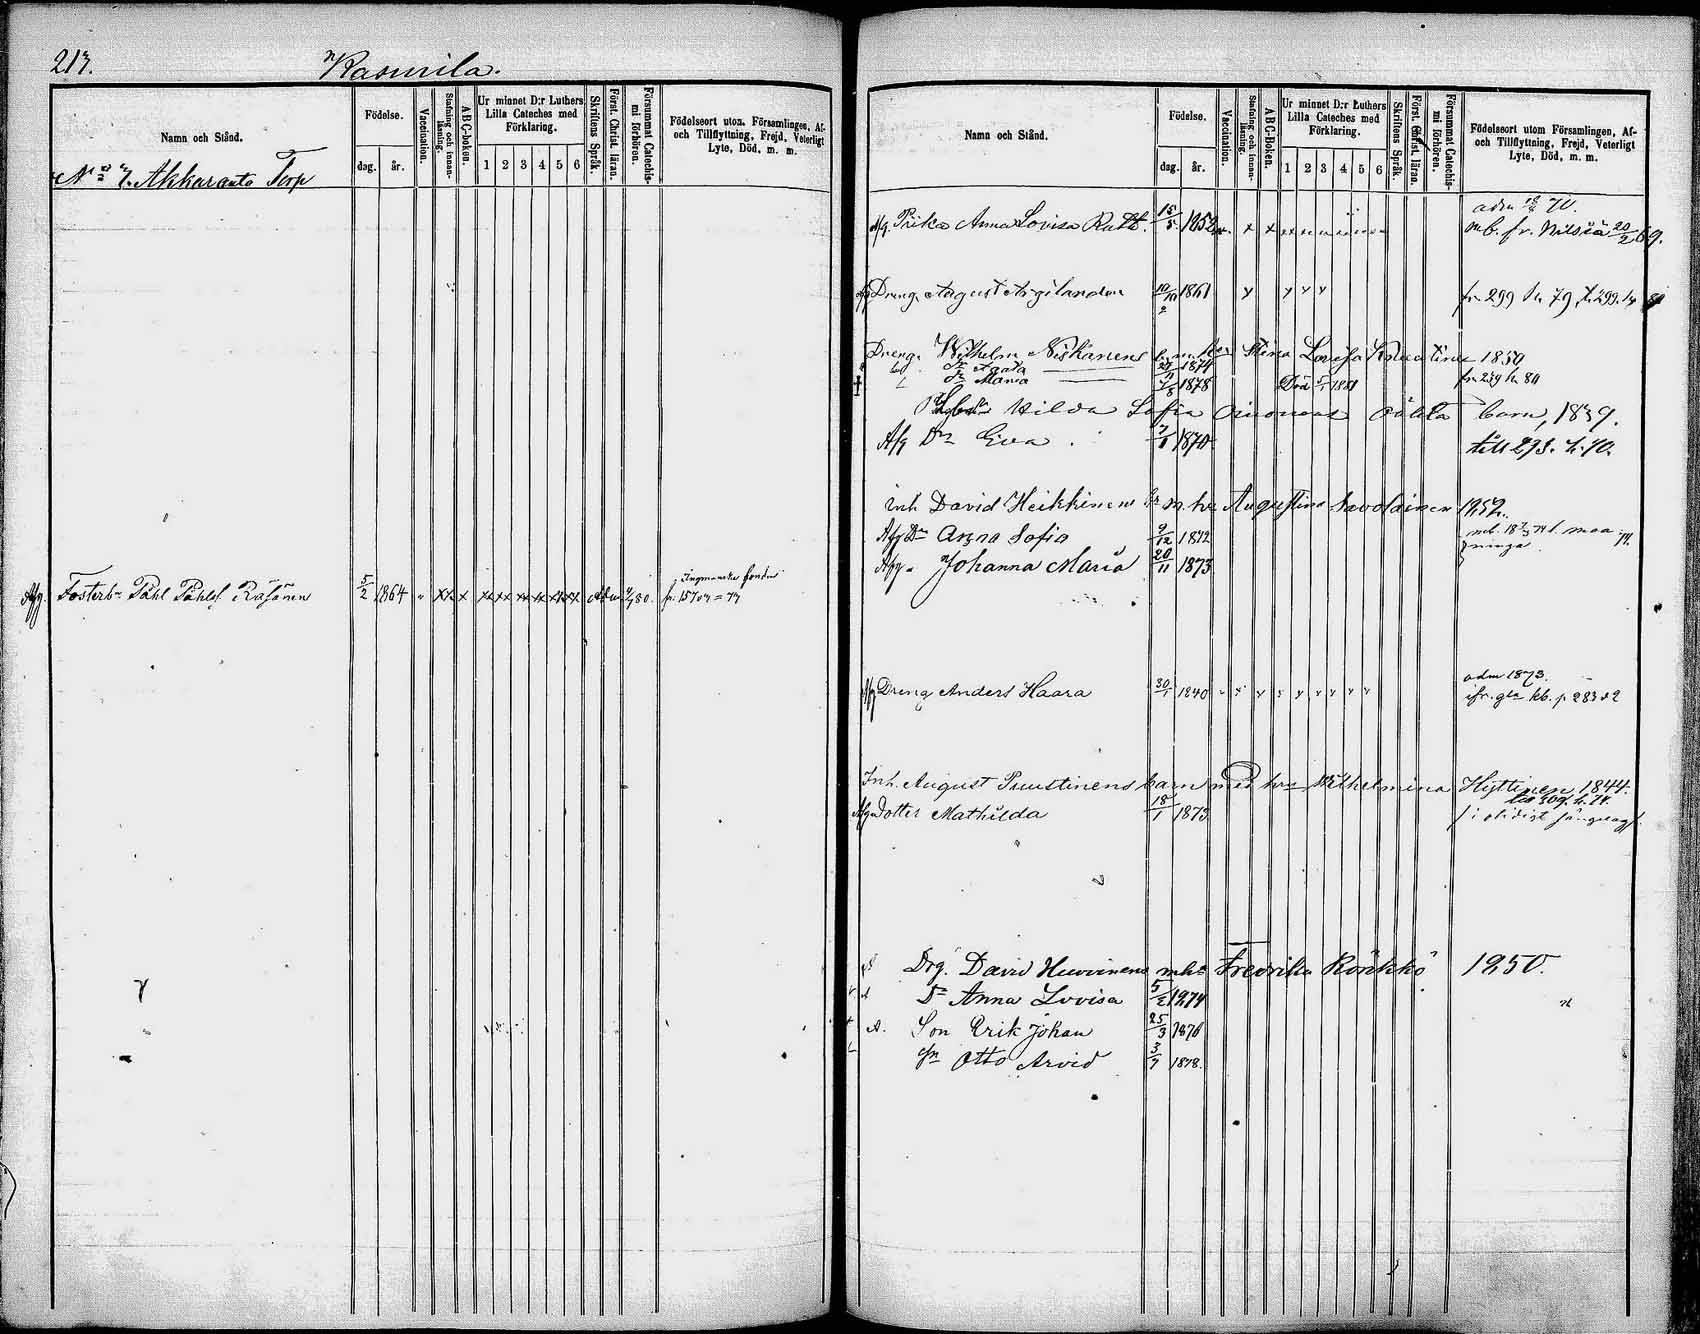 213.
Kasurila.
Namn och Stånd.
Födelse.
dag.
år.
Vaccination.
Stafning och innan-läsning.
ABC-boken.
Ur minnet D:r Luthers Lilla Cateches med Förklaring.
1 2 3 4 5 6
Skriftens Språk.
Först. Christ. läran.
Försummat Catechis-mi förhören.
Födelseort utom Församlingen, Af- och Tillflyttning, Frejd, Veterligt Lyte, Död, m. m.
No 7. Akkaranta Torp
Afg. Fosterbn Påhl Påhls Räsänen 5/2 1864
Namn och Stånd.
Födelse.
dag.
år.
Vaccination.
Stafning och innan-läsning.
ABC-boken.
Ur minnet D:r Luthers Lilla Cateches med Förklaring.
1 2 3 4 5 6
Skriftens Språk.
Först. Christ. läran.
Försummat Catechis-mi förhören.
Födelseort utom Församlingen, Af- och Tillflyttning, Frejd, Veterligt Lyte, Död, m. m.
Afg. Piika Anna Lovisa Rutt. 15/5 1852 adm 70.
m.b. fr. Nilsiä 20/2 69.
Dreng August Argilander 10/10 1861 fr. 299 79, 299
Dreng. Wilhelm Niskanens Stina Lovisa 1850
1874
Dr Maria 7/8 1878 Död 1881 fr. 239 h. 80
Hilda Sofia oäkta barn, 1839.
Afg Dr Eva 7/1 1870 till 293. h. 70.
Inh David Heikkinens m. h. Augustina Savolainen 1852.
Afg Dr Anna Sofia 9/12 1872
Afg " Johanna Maria 20/11 1873
Afg Dreng Anders Haara 30/1 1840 adm 1873.
ifr. gla kb. p 283
Inh. August Puustinens barn med hu Wilhelmina Hyttinen 1844.
Afg Dotter Mathilda 18/1 1873 till 309. h. 74.
Drg. David Huvinens mhu Fredrika Rönkkö 1850.
Dr Anna Lovisa 5/2 1874
A. Son Erik Johan 25/3 1876
Sn Otto Arvid 3/7 1878.